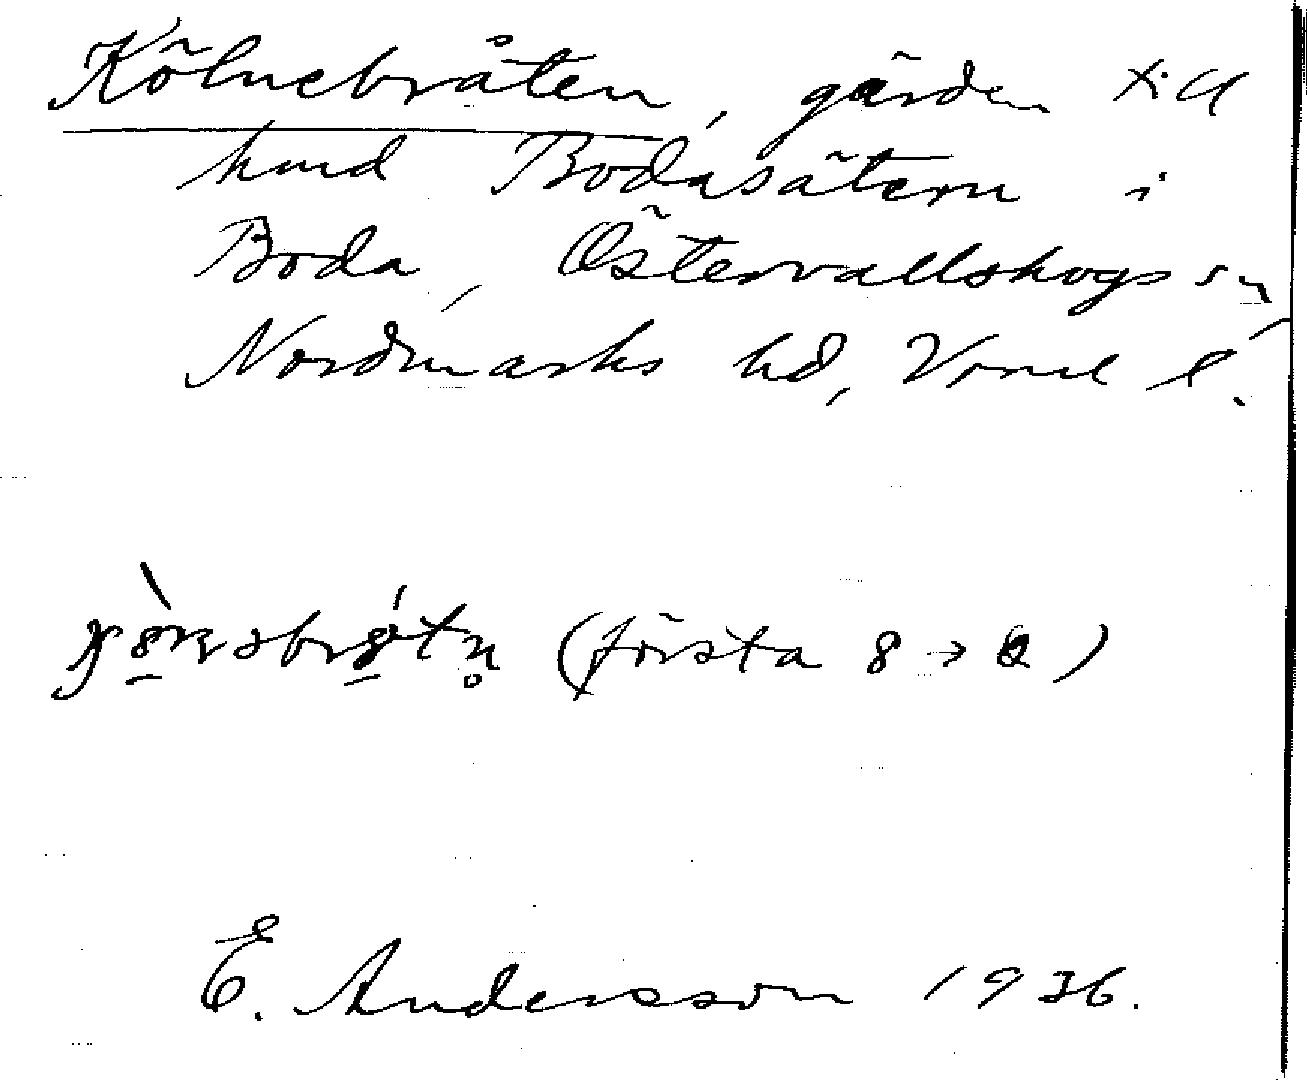 Kölnebråten, gården
hmd Bodasätern i
Boda, Östervallskogs sn,
Nordmarks hd, Vrml l.
(första 8 → )
E. Andersson 1936.